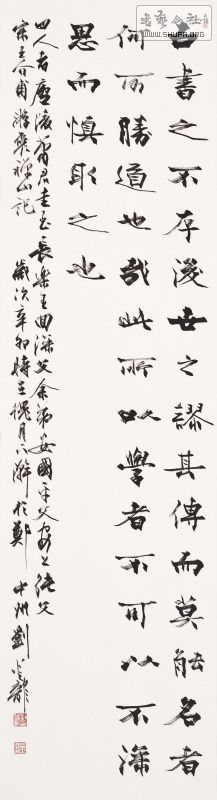 古書之不存後世之謬其傳而莫能名者
何可勝道也哉此所以學者不可以不深
思而慎取之也
四人者廬陵蕭君圭玉長樂王回深父余弟安國平父安上純父
宋王介甫游褒禪山記 歲次辛卯時在槐月下澣於鄭 中州劉龍
WWW.SHUFA.ORG